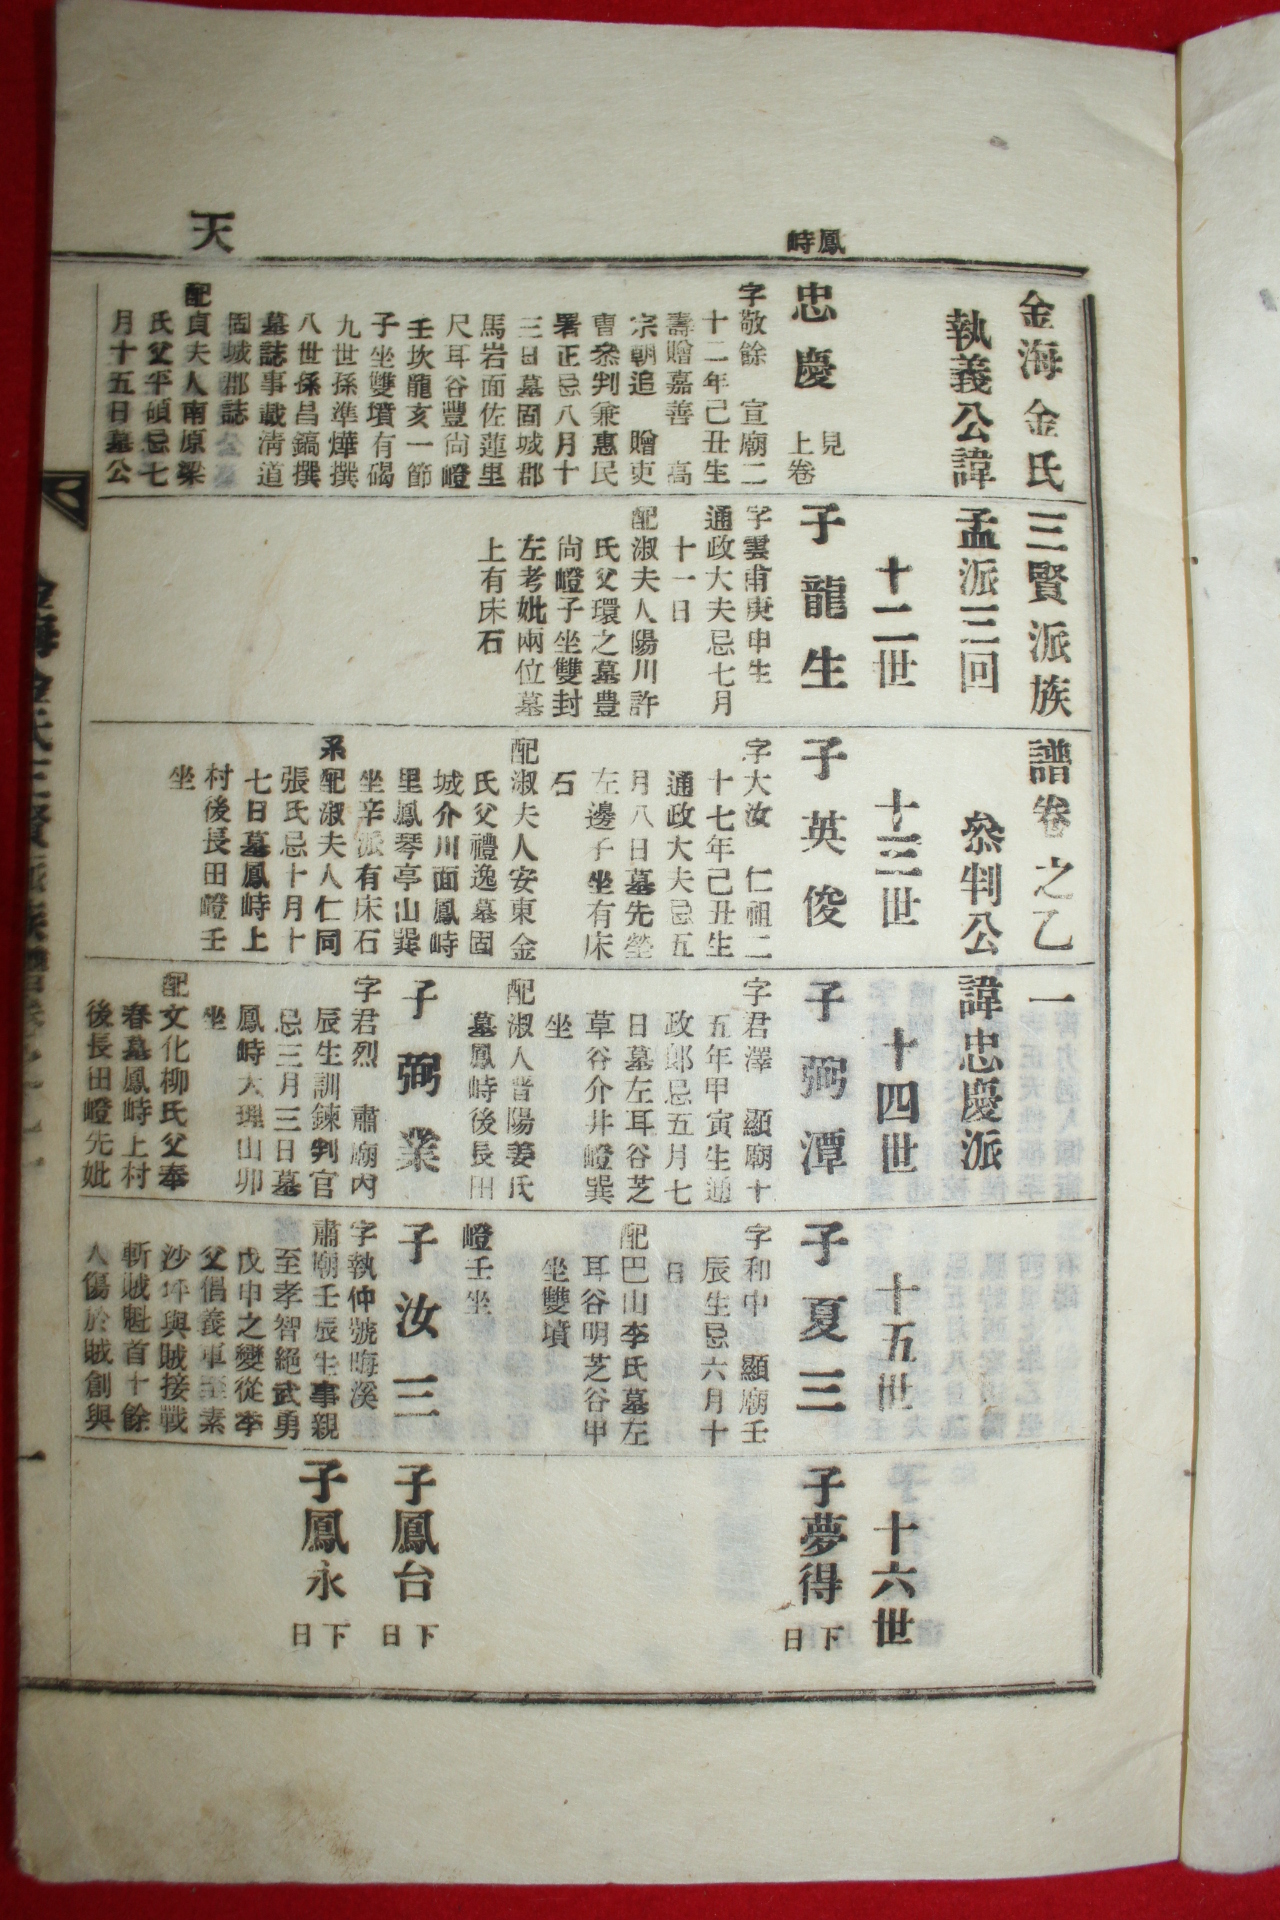 天
鳳
峙
金海金氏三賢派族譜卷之乙一
執義公諱孟派三回 叅判公諱忠慶派
十二世
十三世
十四世
十五世
十六世
忠慶 見
上卷
字敬餘 宣廟二
十二年己丑生
壽贈嘉善 高
宗朝追 贈吏
曹叅判兼惠民
署正忌八月十
三日墓固城郡
馬岩面佐蓮里
尺耳谷豐尙嶝
壬坎龍亥一節
子坐雙墳有碣
九世孫準燁撰
八世孫昌鎬撰
墓誌事載淸道
固城郡誌
配貞夫人南原梁
氏父平碩忌七
月十五日墓公
子龍生
字雲甫庚申生
通政大夫忌七月
十一日
配淑夫人陽川許
氏父環之墓豊
尙嶝子坐雙封
左考妣兩位墓
上有床石
子英俊
字大汝 仁祖二
十七年己丑生
通政大夫忌五
月八日墓先塋
左邊子坐有床
石
配淑夫人安東金
氏父禮逸墓固
城介川面鳳峙
里鳳琴亭山巽
坐辛派有床石
系配淑夫人仁同
張氏忌十月十
七日墓鳳峙上
村後長田嶝壬
坐
子弼潭
字君澤 顯廟十
五年甲寅生通
政郎忌五月七
日墓左耳谷芝
草谷介井嶝巽
坐
配淑人晋陽姜氏
墓鳳峙後長田
嶝壬坐
子弼業
字君烈 肅廟丙
辰生訓鍊判官
忌三月三日墓
鳳峙大琟山卯
坐
配文化柳氏父奉
春墓鳳峙上村
後長田嶝先妣
子夏三
字和中 顯廟壬
辰生忌六月十
日
配巴山李氏墓左
耳谷明芝谷甲
坐雙墳
子汝三
字執仲號晦溪
肅廟壬辰生事親
至孝智絕武勇
戊申之變從李
父倡義軍至素
沙坪與賊接戰
斬賊魁首十餘
人傷於賊創與
子夢得 下
日
子鳳台 下
日
子鳳永 下
日